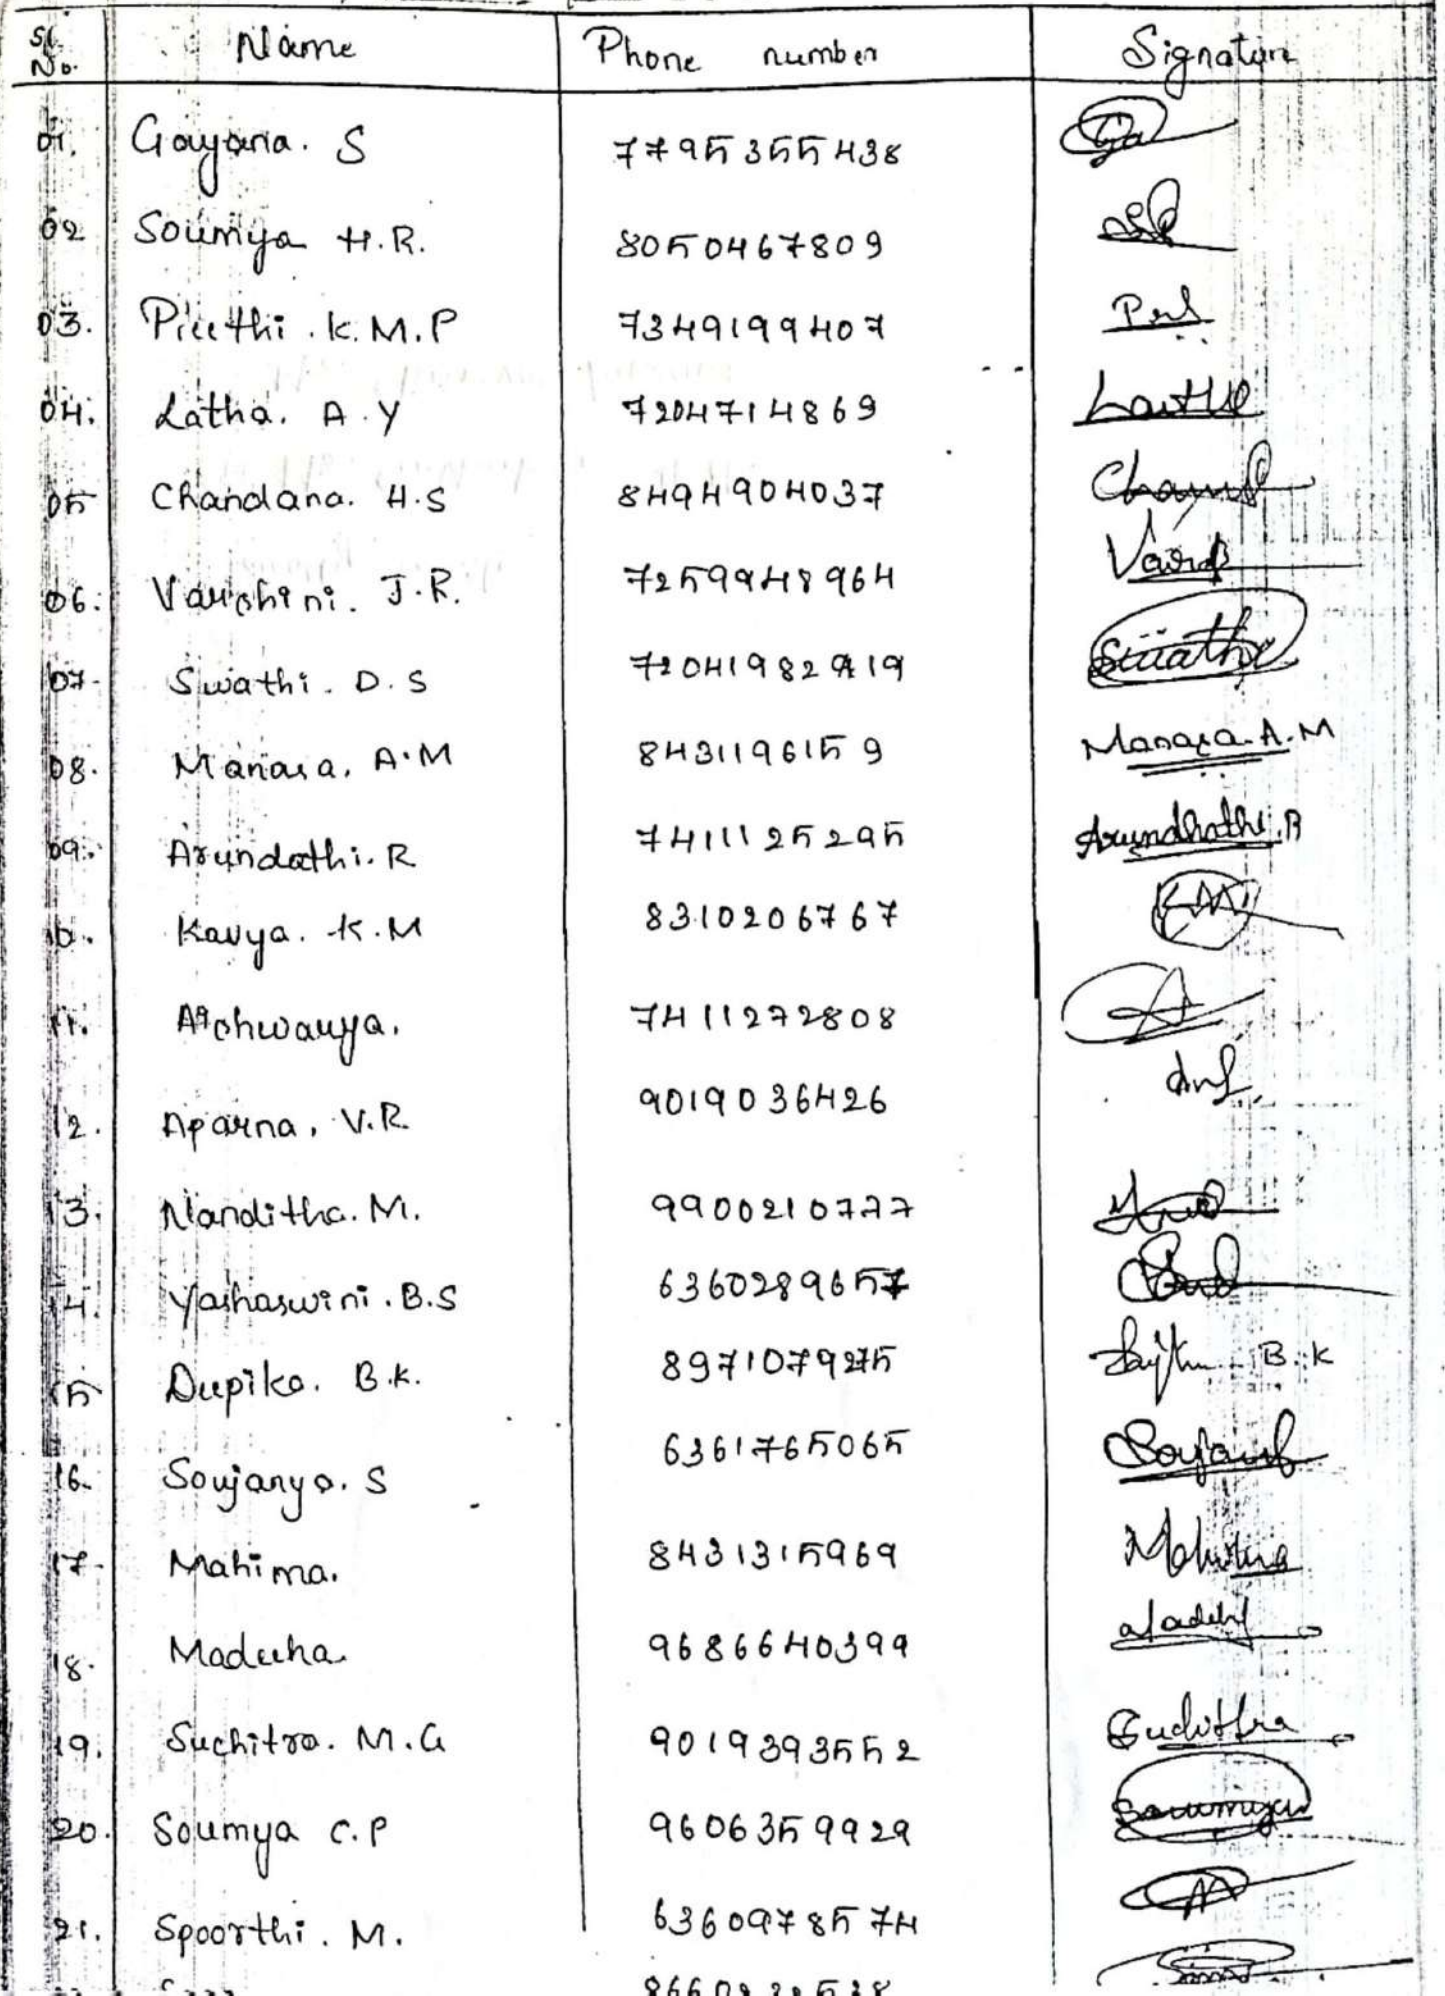 Sl. No. Name Phone number Signature
01. Gayana. S 7795355438
02 Soumya H.R. 8050467809
03. Preethi. K.M.P 7349199407 Pri
04. Latha. A.Y 7204714869 Latha
05 Chandana. H.S 8494904037
06. Varshini. J.R. 7259948964
07. Swathi. D.S 72041982919 Swathi
08. Manasa. A.M 8431196159 Manasa.A.M
09. Arundathi. R 7411125295 Arundhathi.R
10. Kavya. K.M 8310206767 KM
11. Aishwarya. 7411272808 A
12. Aparna. V.R. 9019036426
13. Nanditha. M. 9900210777
14. Yashaswini. B.S 6360289657
15 Deepika. B.K. 8971079275 B.K
16. Soujanya. S 6361765065
17. Mahima. 8431315969 Mahima
18. Madeeha. 9686640399
19. Suchitra. M.G 9019393552 Suchithra
20. Soumya C.P 9606359929 Soumya
21. Spoorthi. M. 6360978574